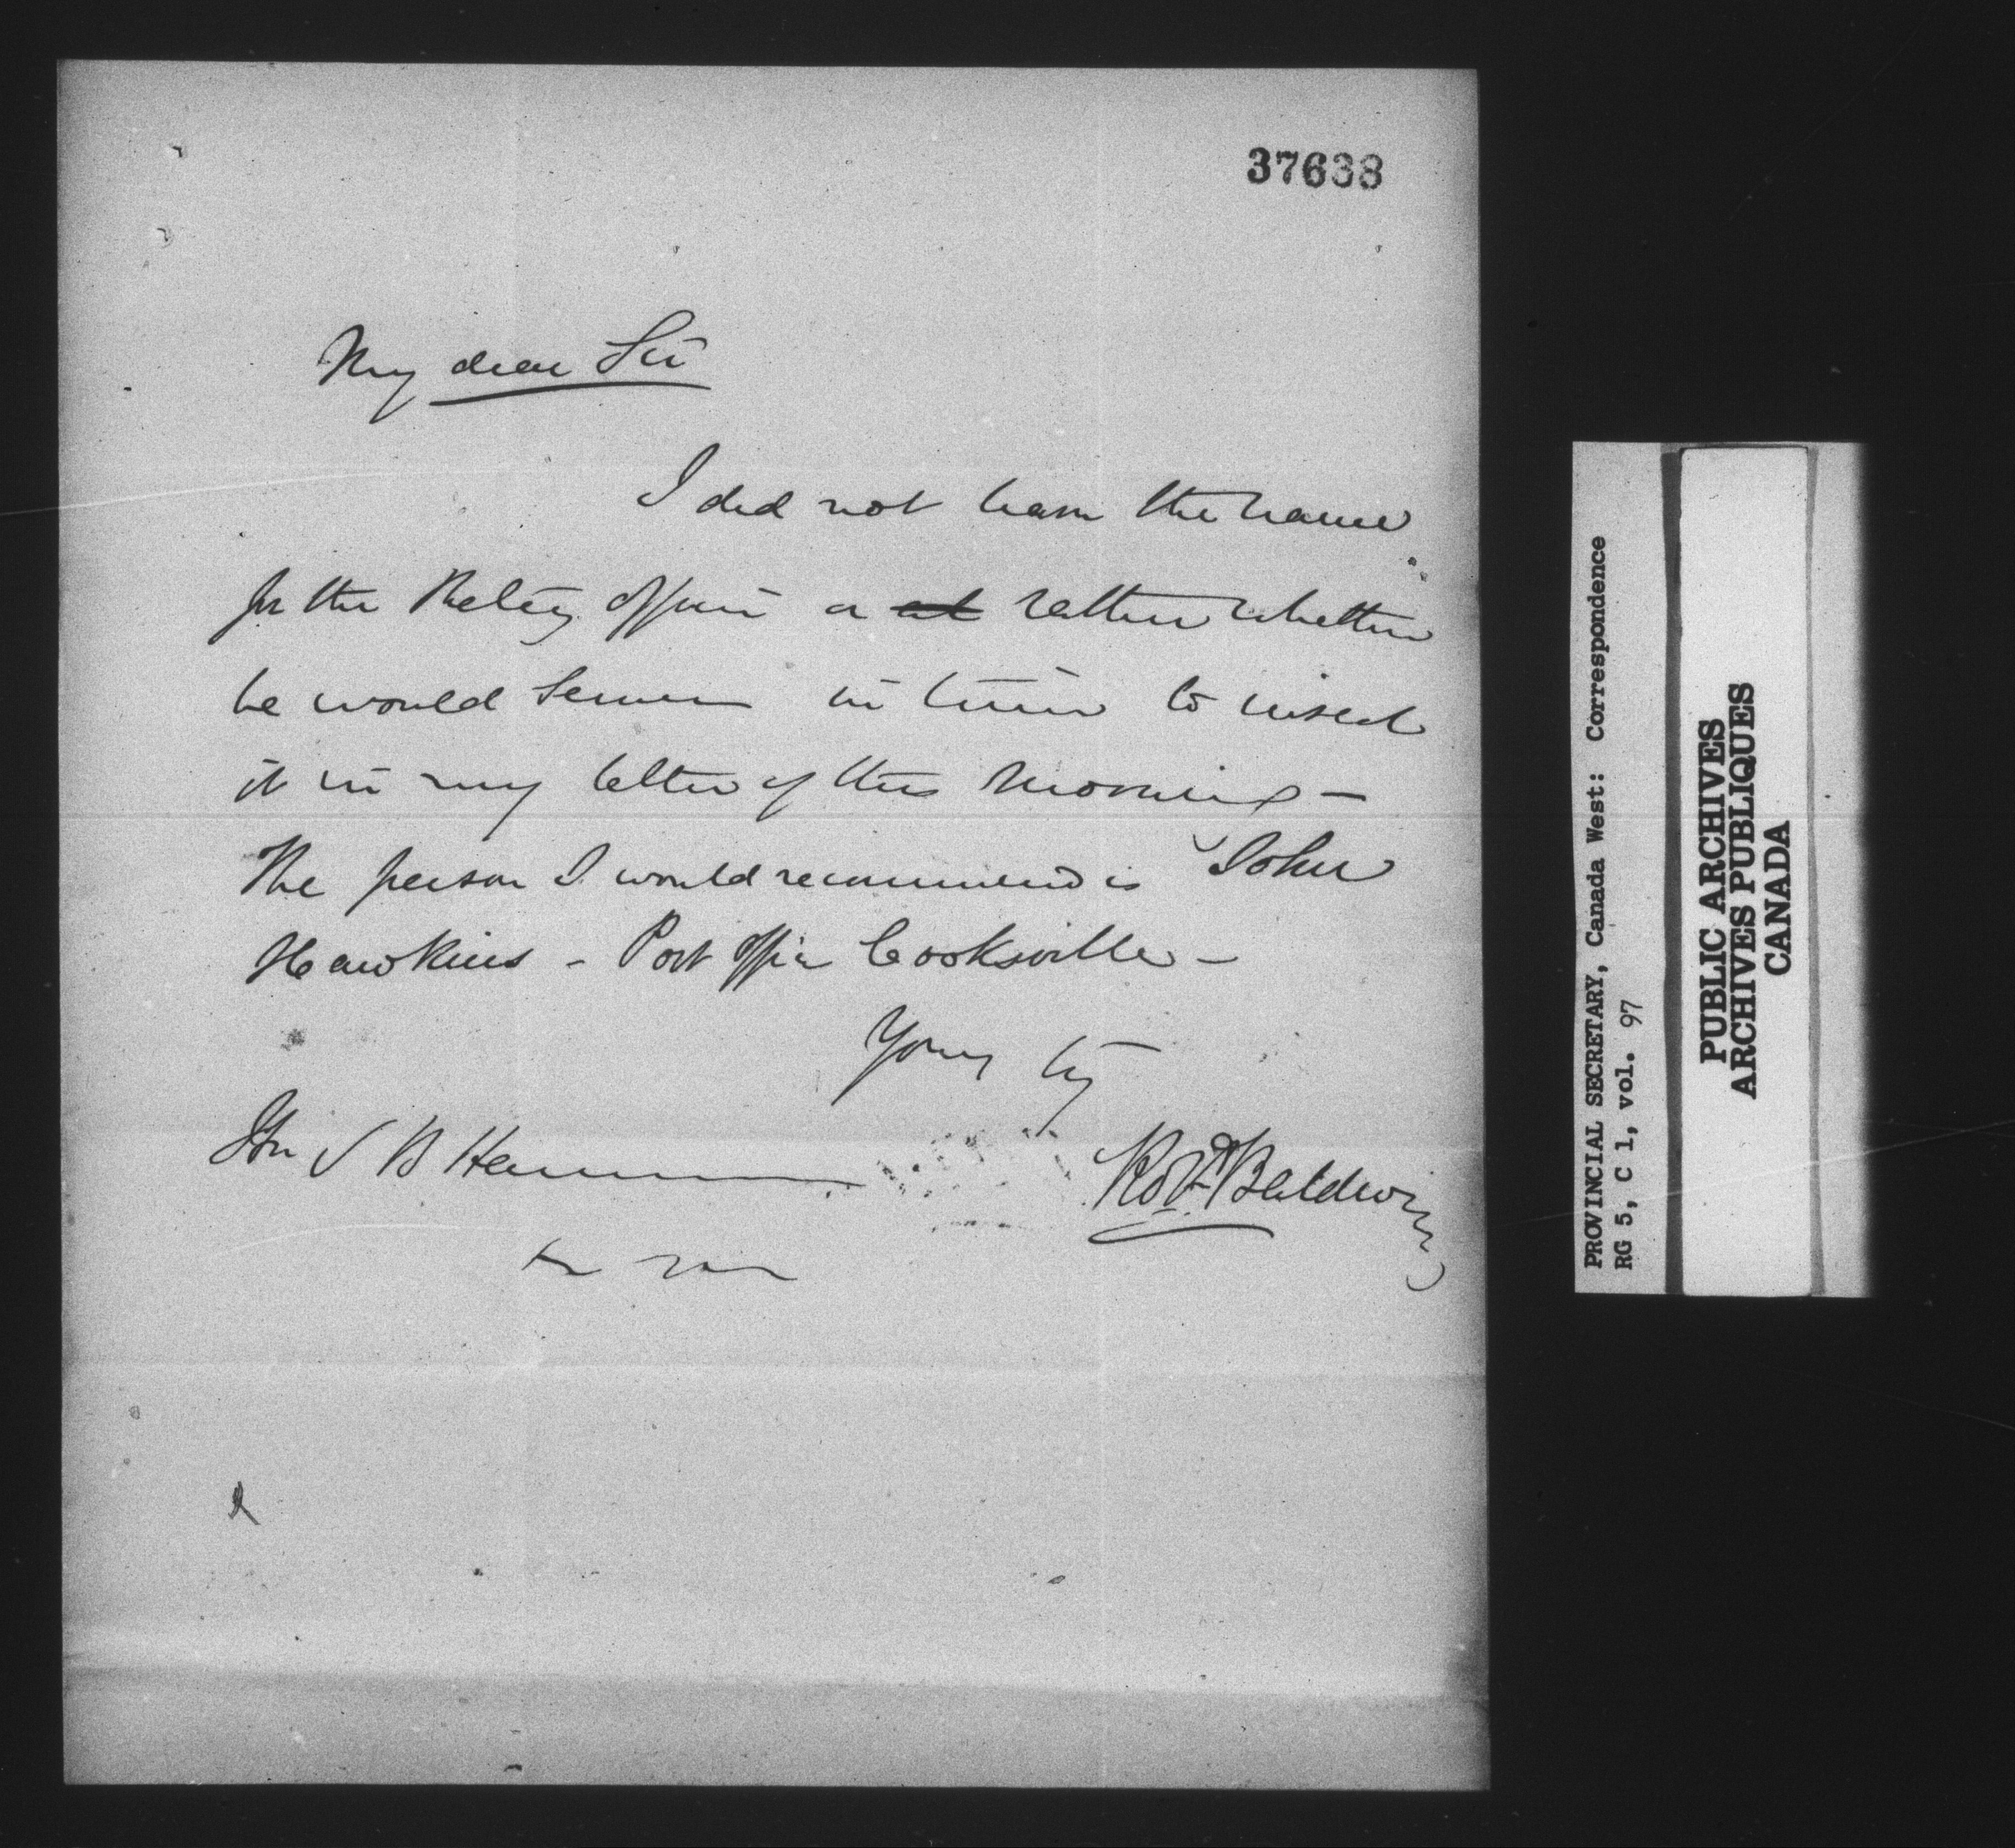 37638
My dear Sir
I did not learn the name
for the Retg Officer or rather whether
he would serve in time to insert
it in my letter of this morning –
The person I would recommend is John
Hawkins – Post Office Cooksville –
Yours ty
Hon S B Harrison
Robt Baldwin
PROVINCIAL SECRETARY, Canada West: Correspondence
RG 5, C 1, vol. 97
PUBLIC ARCHIVES
ARCHIVES PUBLIQUES
CANADA